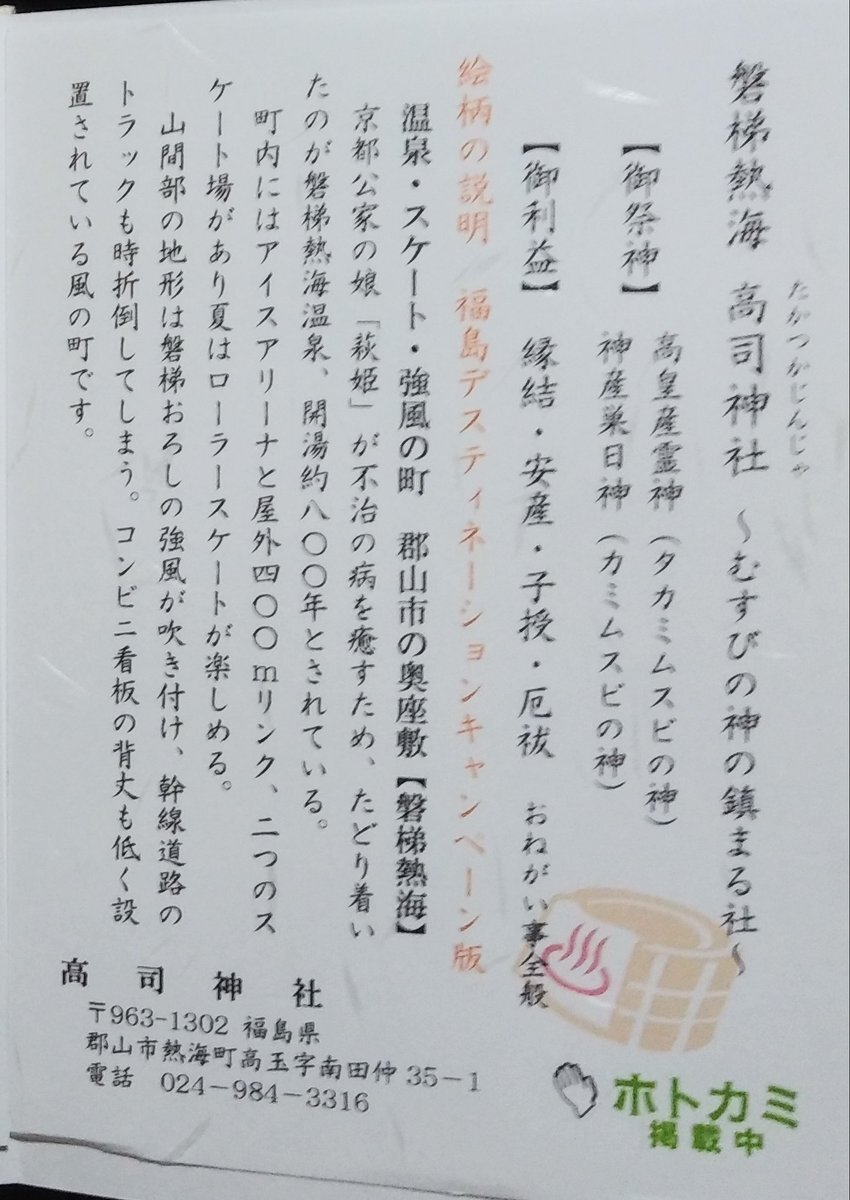 磐梯熱海 高司神社 ～むすびの神の鎮まる社～
たかつかじんじゃ
【御祭神】 高皇産霊神(タカミムスビの神)
神産巣日神(カミムスビの神)
【御利益】 縁結・安産・子授・厄祓 おねがい事全般
絵柄の説明 福島デスティネーションキャンペーン版
温泉・スケート・強風の町 郡山市の奥座敷【磐梯熱海】
京都公家の娘「萩姫」が不治の病を癒すため、たどり着い
たのが磐梯熱海温泉、開湯約八〇〇年とされている。
町内にはアイスアリーナと屋外四〇〇mリンク、二つのス
ケート場があり夏はローラースケートが楽しめる。
山間部の地形は磐梯おろしの強風が吹き付け、幹線道路の
トラックも時折倒してしまう。コンビニ看板の背丈も低く設
置されている風の町です。
高司神社
〒963-1302 福島県
郡山市熱海町高玉字南田仲 35－1
電話 024-984-3316
ホトカミ
掲載中